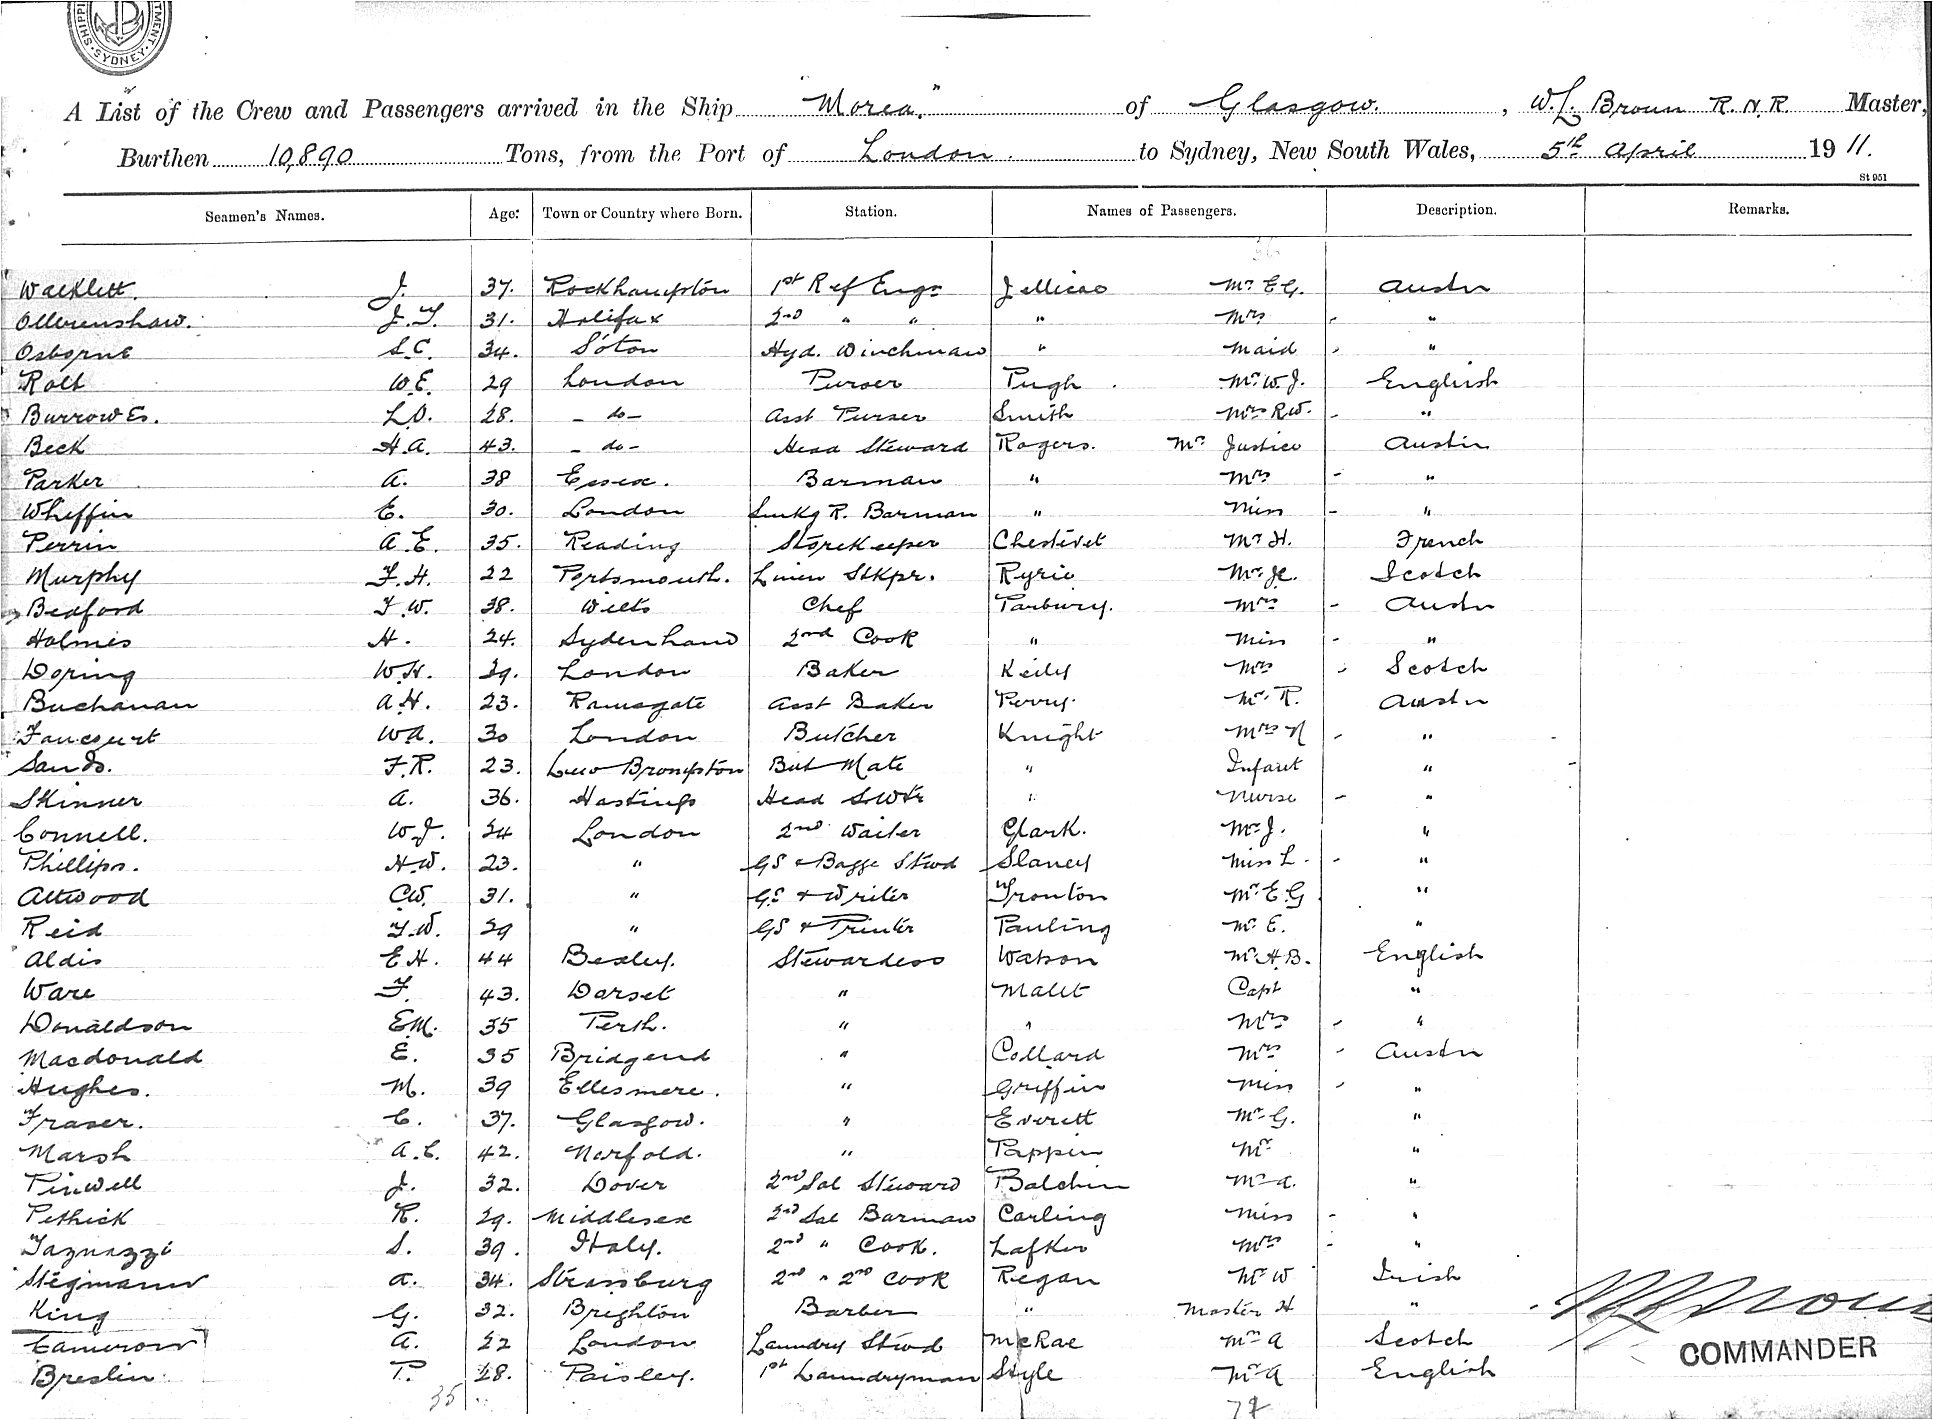 SYDNEY
A List of the Crew and Passengers arrived in the Ship "Morea" of Glasgow. , W.L. Broun R.N.R. Master,
Burthen 10,890 Tons, from the Port of London. to Sydney, New South Wales, 5th April 1911.
St 951
Seamen's Names. Age. Town or Country where Born. Station. Names of Passengers. Description. Remarks.
J. 37. Rockhampton 1st Ref Engr Jellicoe Mr E G. Austn
Ollerenshaw. J.T. 31. Halifax 2nd " " " Mrs - "
Osborne S.C. 34. S'oton Hyd. Winchman " Maid - "
Rolt W.E. 29 London Purser Pugh Mr W.J. English
Burrowes. L.O. 28. -do- Asst Purser Smith Mrs R.W. - "
Beck H.A. 43. -do- Head Steward Rogers. Mr Justice Austn
Parker A. 38 Essex. Barman " Mrs - "
Wheffin E. 30. London Smkg R. Barman " Miss - "
Perrin A.E. 35. Reading Storekeeper Mr H. French
Murphy F.H. 22 Portsmouth. Linen Stkpr. Ryrie Scotch
Bedford F.W. 38. Wilts Chef Tarbury. Mrs - Austn
Holmes H. 24. Sydenham 2nd Cook " Miss - "
Doring W.H. 29. London Baker Keily Mrs - Scotch
Buchanan A.H. 23. Ramsgate Asst Baker Perry. Mr R. Austn
Fancourt W.A. 30 London Butcher Knight Mrs N - "
Sands. F.R. 23. New Brompton But Mate " Infant " -
Skinner A. 36. Hastings Head S.Wtr " Nurse - "
Connell. W.J. 24 London 2nd Waiter Clark. Mr J. "
Phillips. H.W. 23. " GS & Bagge Stwd Slaney Miss L. - "
Attwood C.W. 31. " GS & Writer Mr E.G "
Reid 29 " GS & Printer Pauling Mr E. "
Aldis E.H. 44 Bexley. Stewardess Watson Mr H.B. English
Ware F. 43. Dorset " Malet Capt "
Donaldson E.M. 35 Perth. " " Mrs - "
Macdonald E. 35 Bridgend " Collard Mrs - Austn
Hughes. M. 39 Ellesmere. " Griffin Miss - "
Fraser. C. 37. Glasgow. " Everett Mr G. "
Marsh A.E. 42. Norfold. " Pappin Mr "
Pinwell J. 32. Dover 2nd Sal Steward Balchin Mr A. "
Pethick R. 29. Middlesex 2nd Sal Barman Carling Miss - "
S. 39. Italy. 2nd " Cook. Lafker Mrs - "
Stegmann A. 34. Strassburg 2nd " 2nd Cook Regan Mr W Irish
King G. 32. Brighton Barber " Master H "
Cameron A. 22 London Laundry Stwd McRae Mr A Scotch
COMMANDER
Breslin P. 28. Paisley. 1st Laundryman Style Mr A English
35